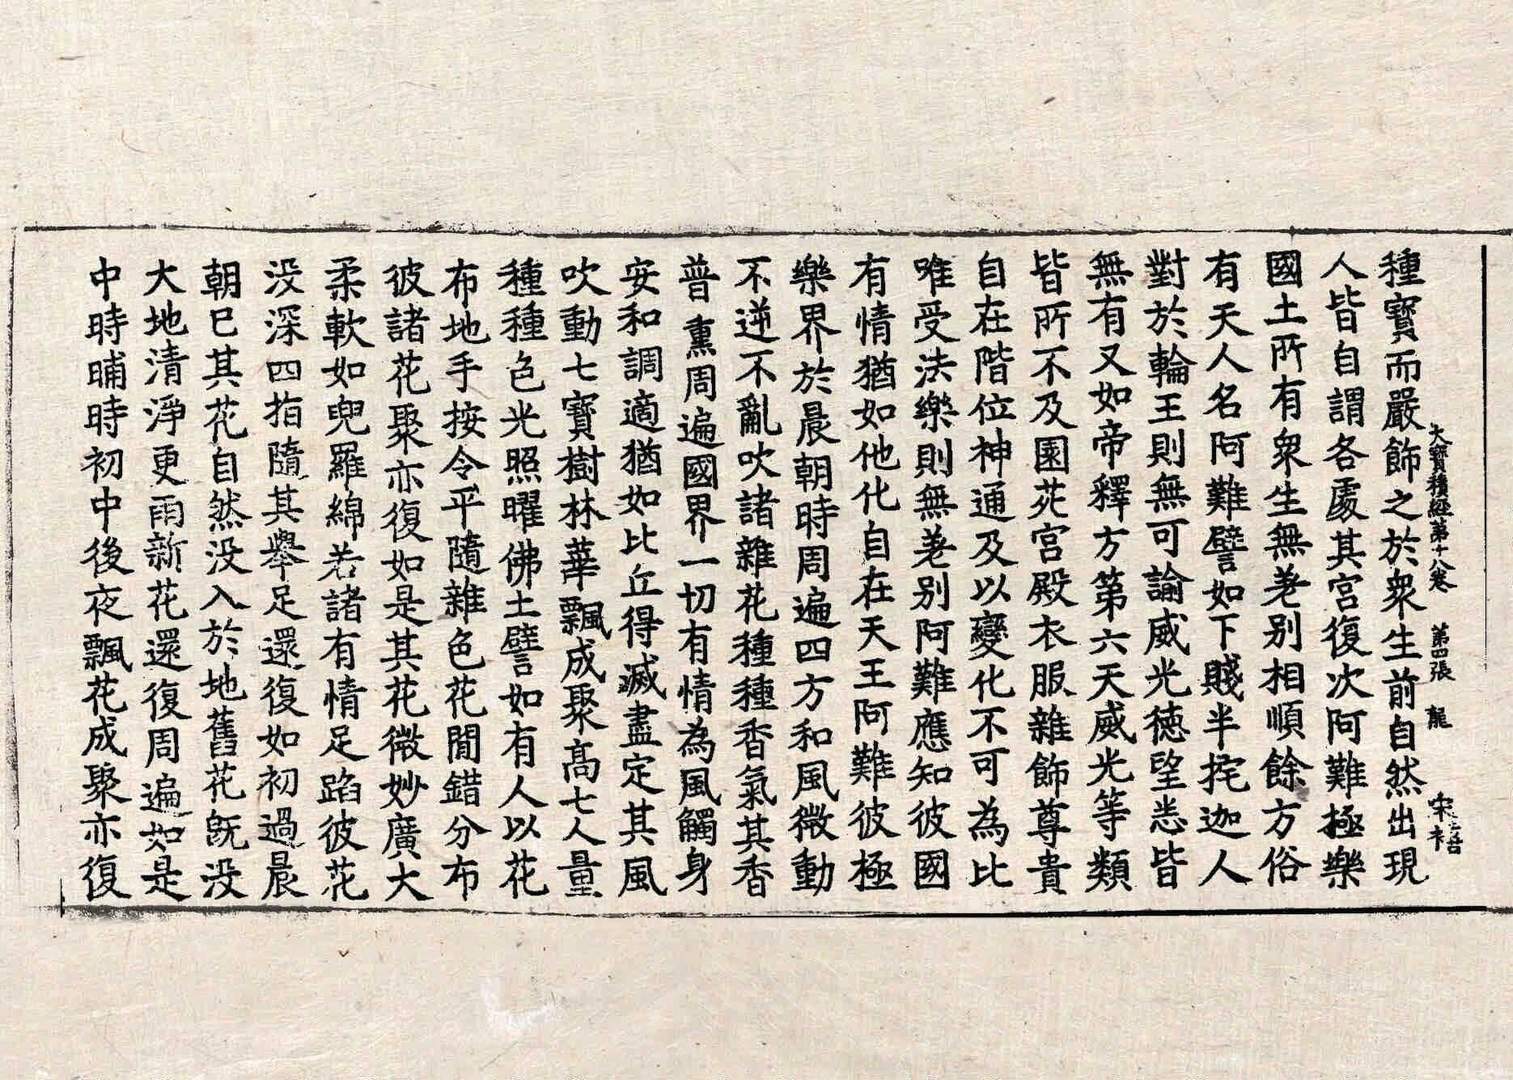 大寳積經第十八卷 第四張 龍
種寳而嚴飾之於衆生前自然出現
人皆自謂各處其宮復次阿難極樂
國土所有衆生無差別相順餘方俗
有天人名阿難譬如下賤半挓迦人
對於輪王則無可論威光徳望悉皆
無有又如帝釋方第六天威光等類
皆所不及園菀宮殿衣服雜飾尊貴
自在階位神通及以變化不可為比
唯受法樂則無差別阿難應知彼國
有情猶如他化自在天王阿難彼極
樂界於晨朝時周遍四方和風微動
不逆不亂吹諸雜花種種香氣其香
普熏周遍國界一切有情為風觸身
安和調適猶如比丘得滅盡定其風
吹動七寳樹林華飄成聚髙七人量
種種色光照曜佛土譬如有人以花
布地手按令平隨雜色花間錯分布
彼諸花聚亦復如是其花微妙廣大
柔軟如兜羅綿若諸有情足蹈彼花
没深四指隨其舉足還復如初過晨
朝已其花自然没入於地舊花旣没
大地清淨更雨新花還復周遍如是
中時晡時初中後夜飄花成聚亦復